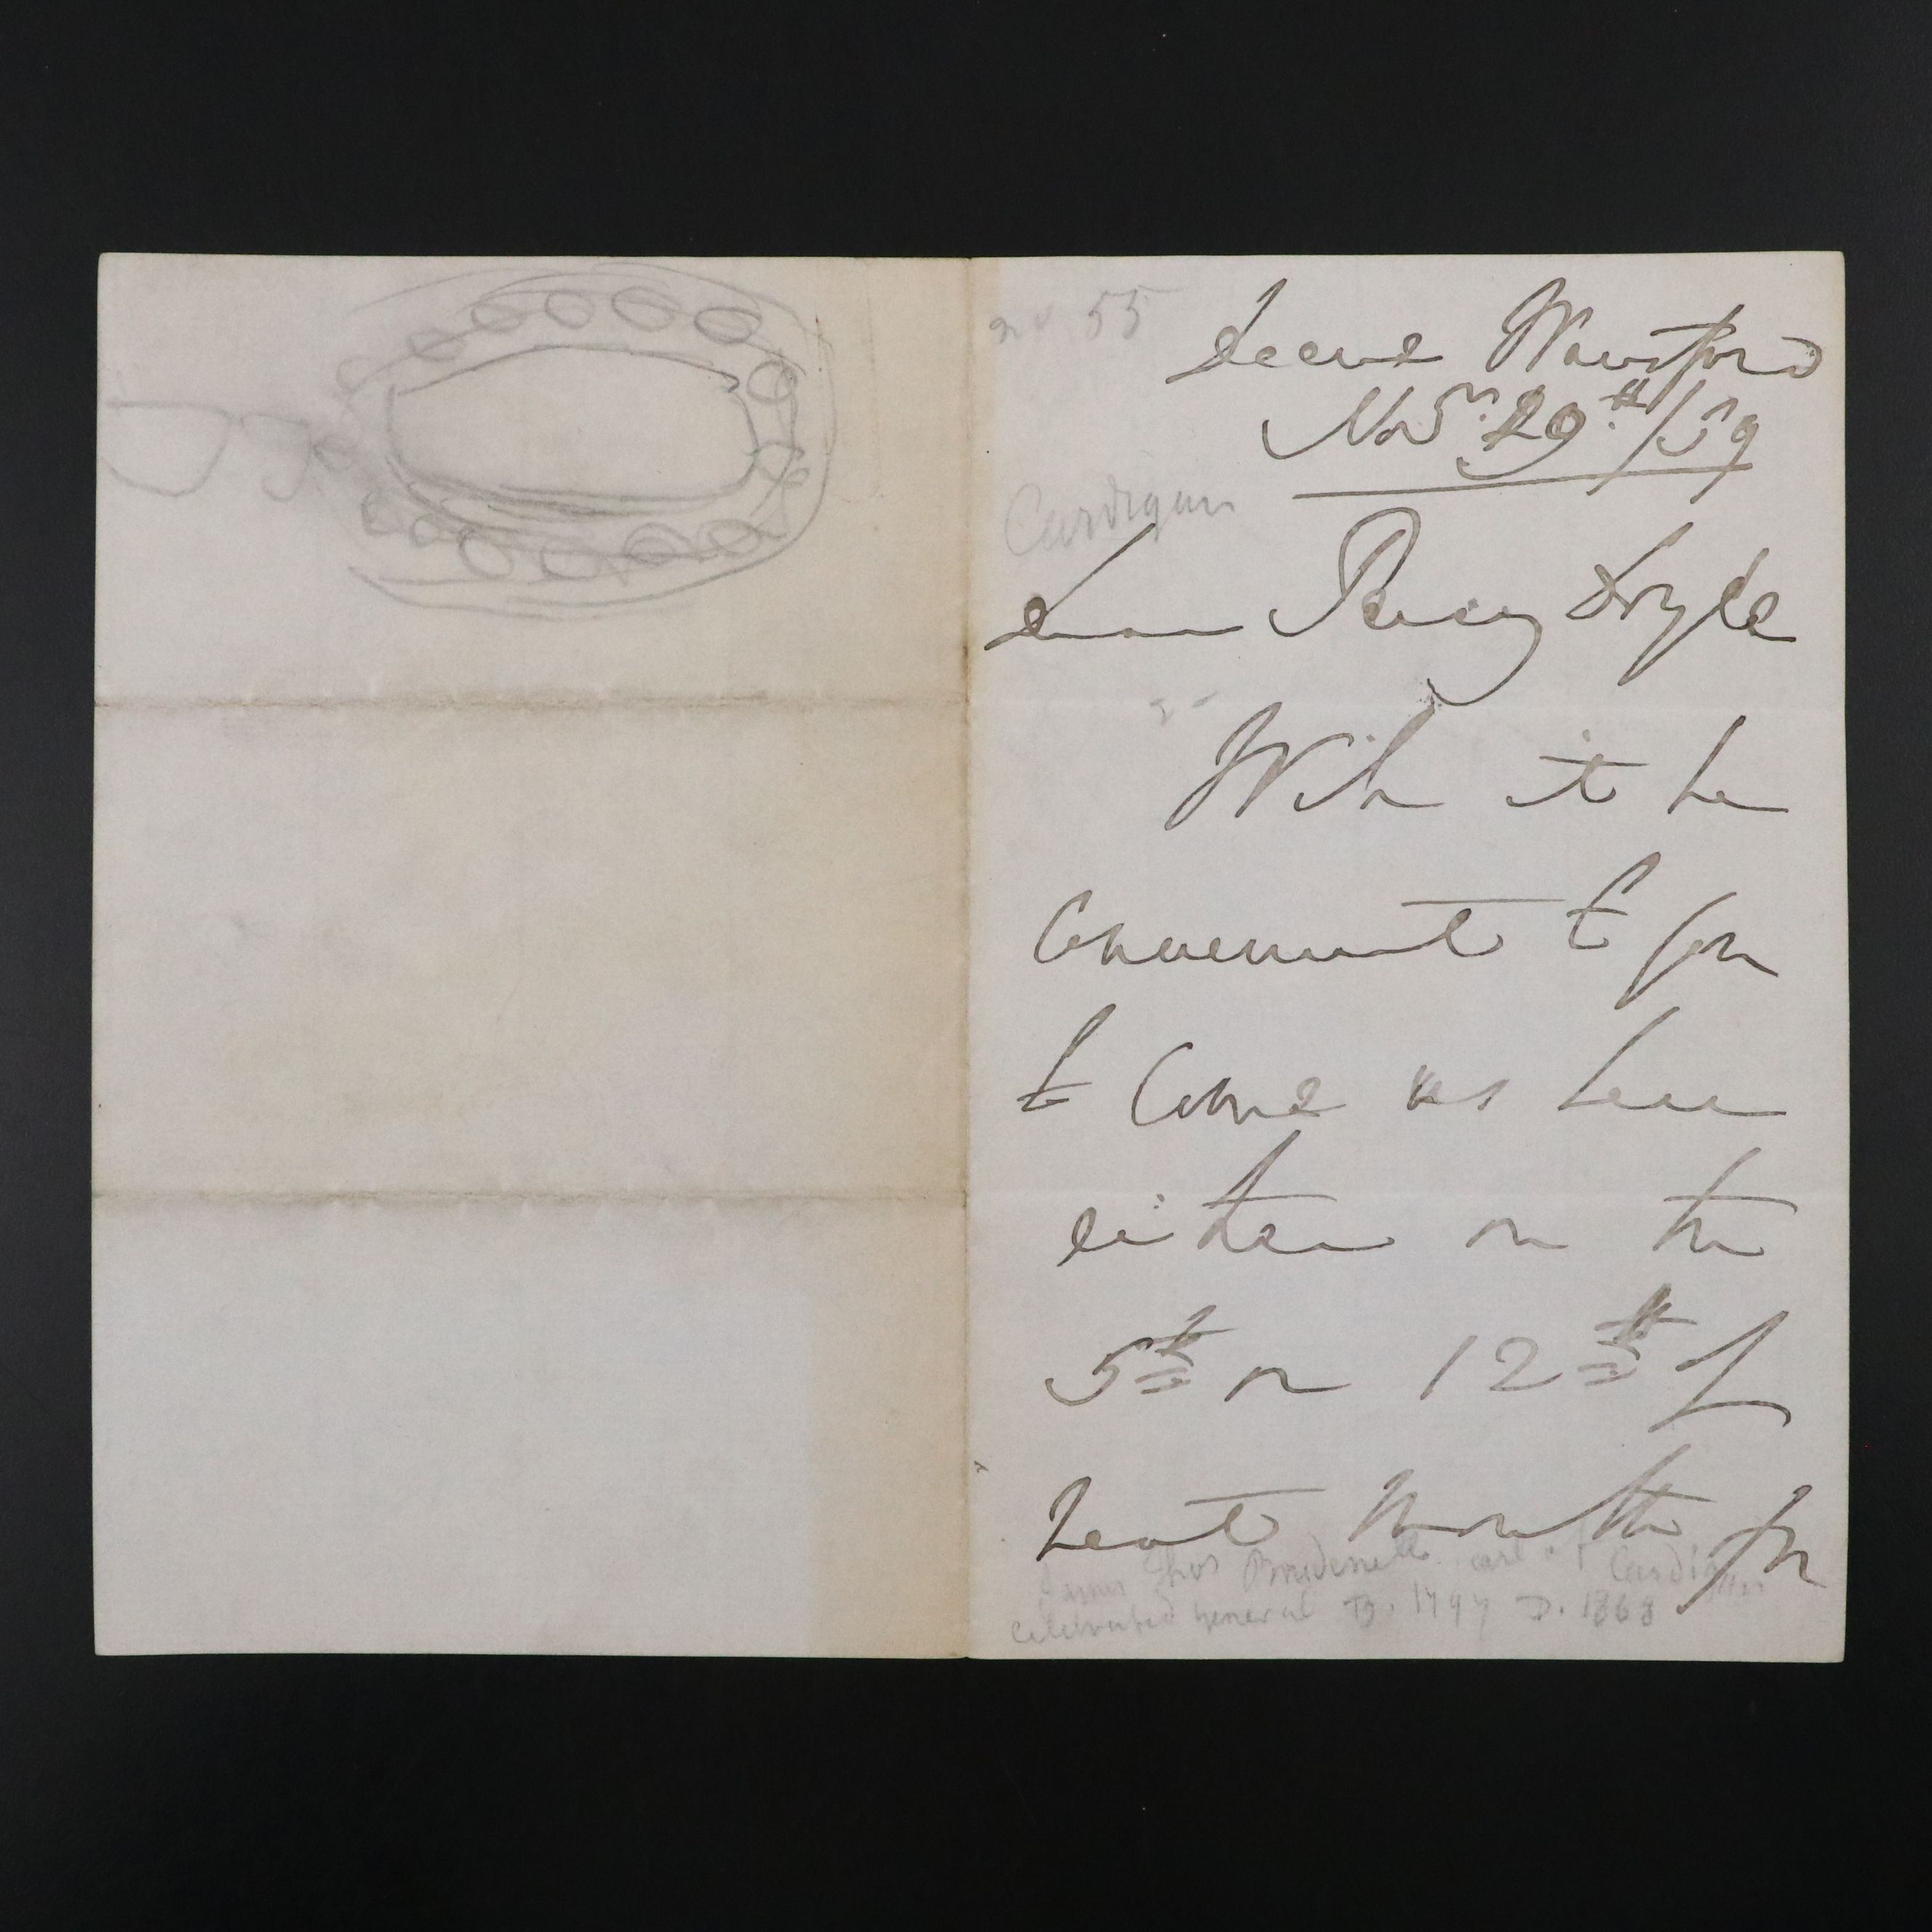 55
Deene Wansford
Novr. 29th/59
Cardigan
Dear Percy Doyle
Will it be
Convenient to you
to Come us here
either on the
5th or 12th of
next Month for
James Thos Brudenell earl of Cardigan
celebrated general B. 1797 D. 1868